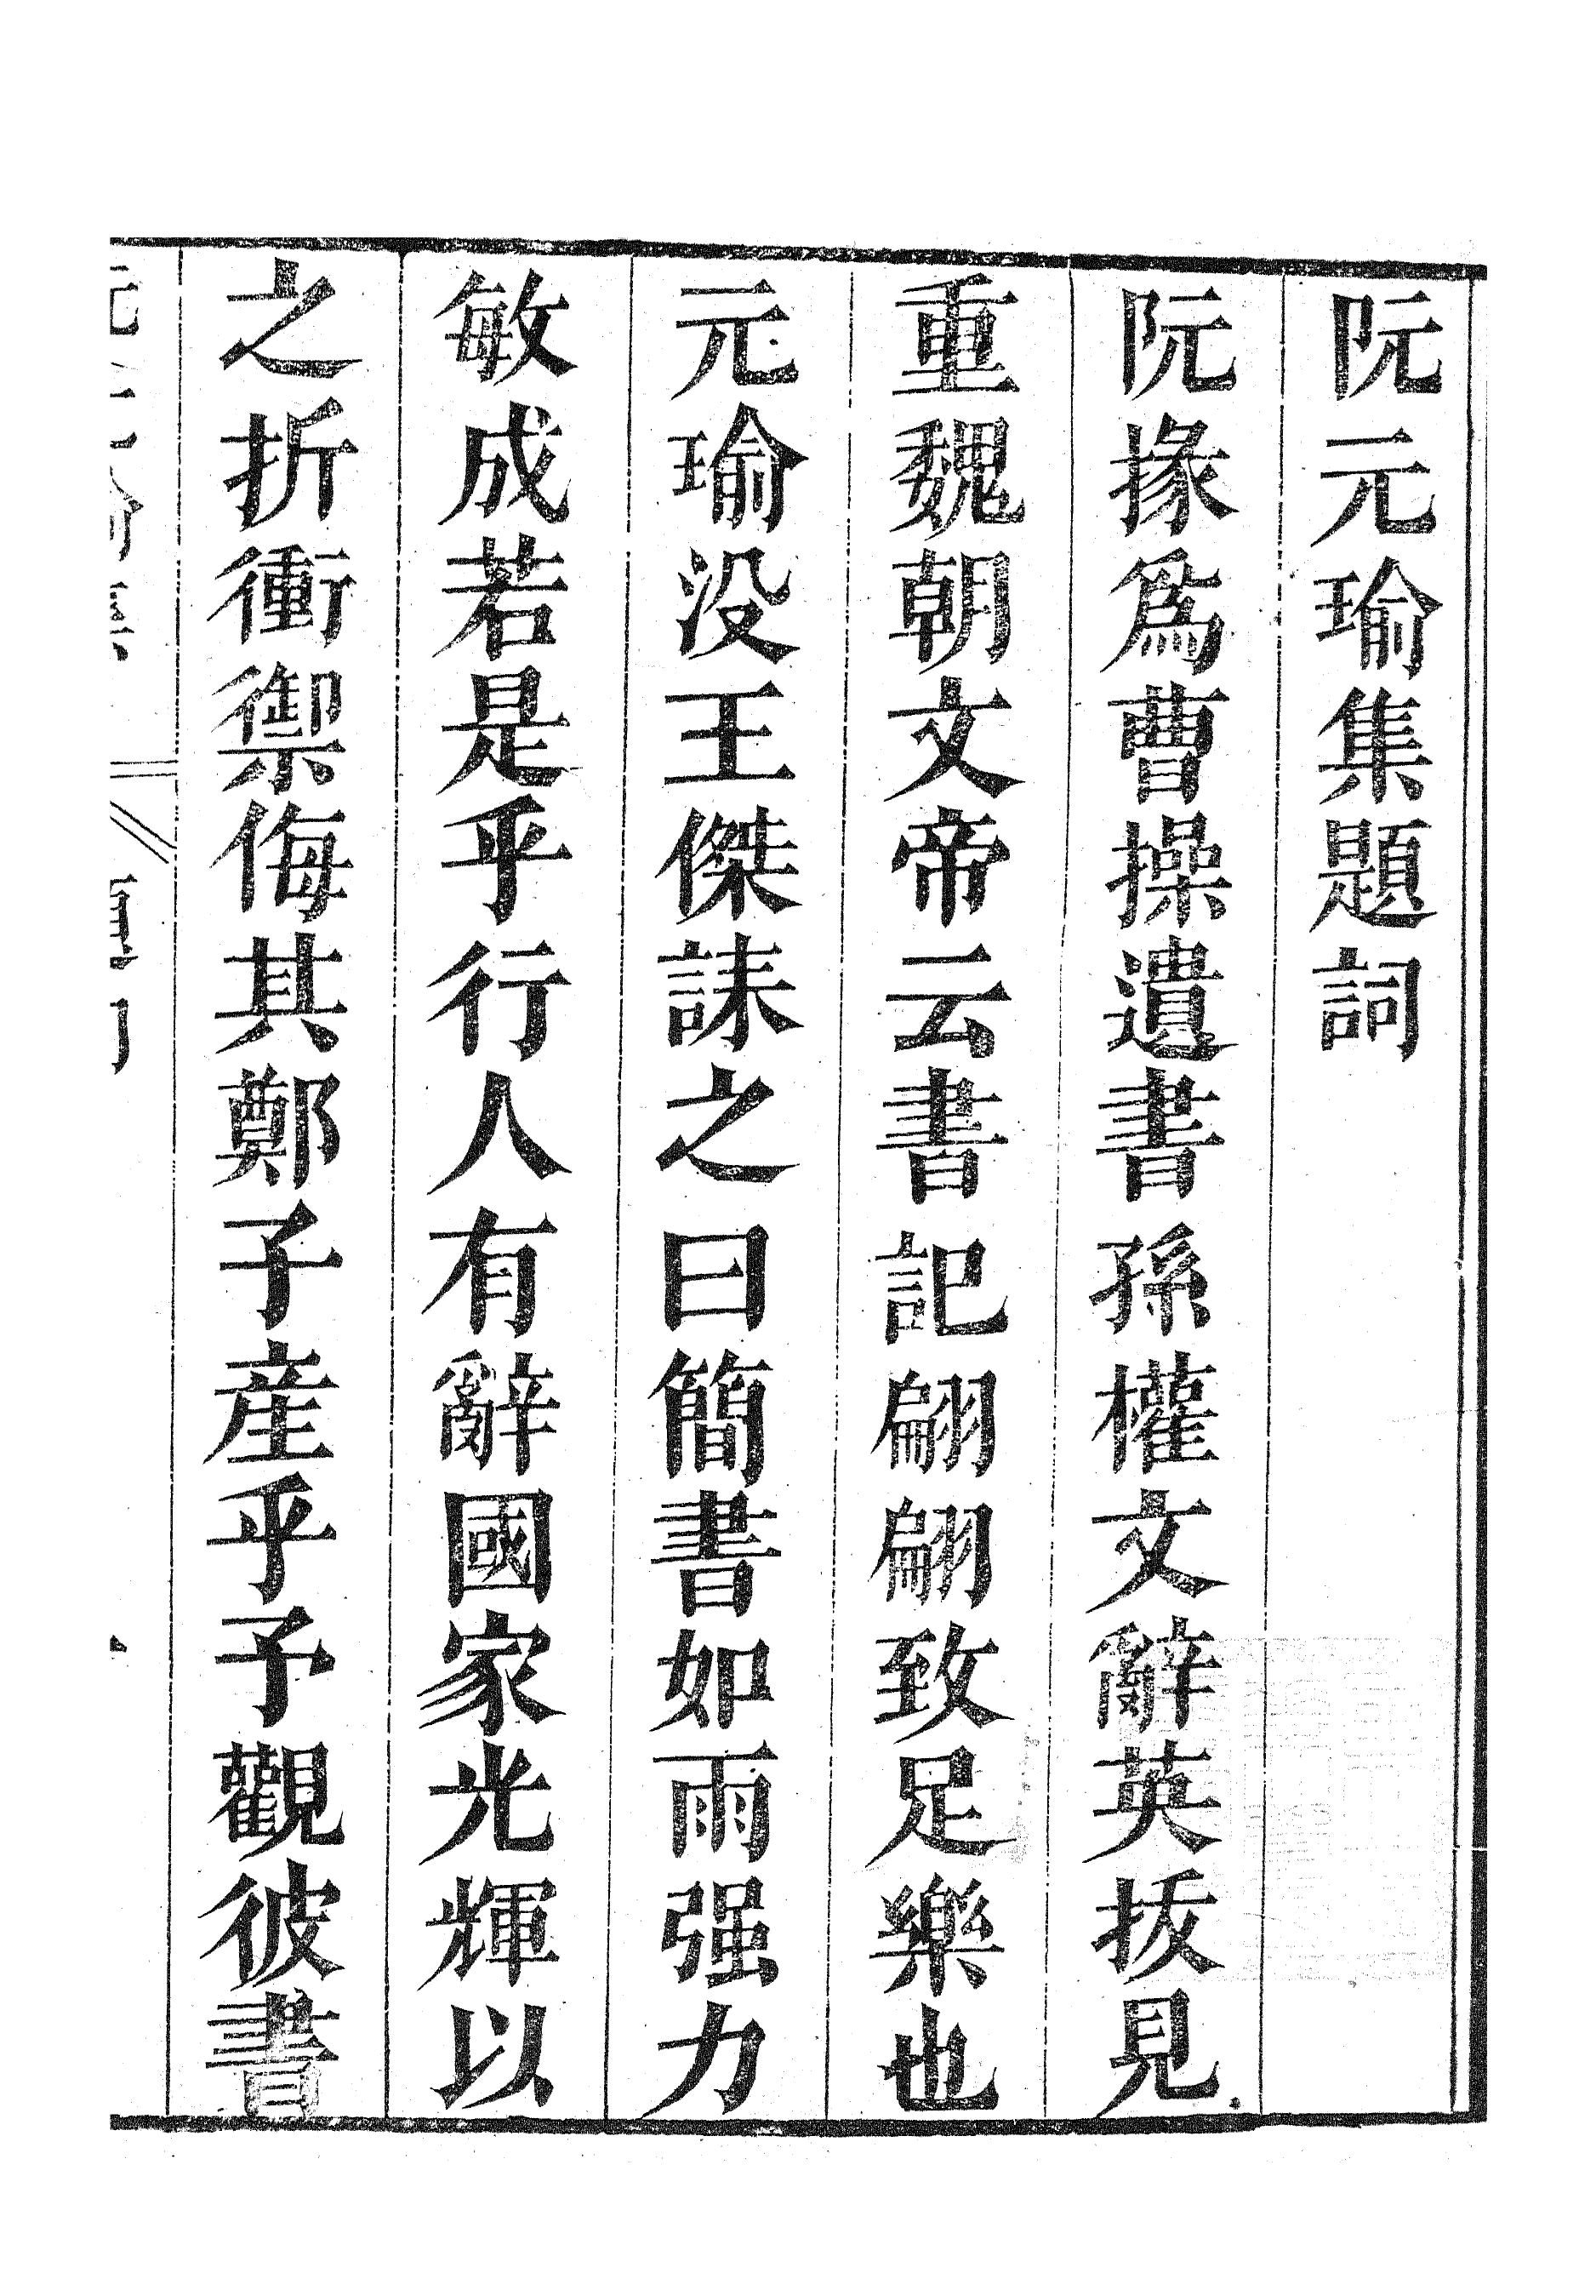 阮元瑜集題詞
阮掾爲曹操遺書孫權文辭英拔見
重魏朝文帝云書記翩翩致足樂也
元瑜没王傑誄之曰簡書如雨强力
敏成若是乎行人有辭國家光輝以
之折衝禦侮其鄭子產乎予觀彼書